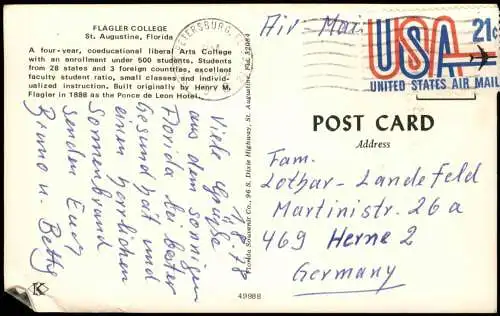 FLAGLER COLLEGE
St. Augustine, Florida
A four-year, coeducational liberal Arts College
with an enrollment under 500 students. Students
from 28 states and 3 foreign countries, excellent
faculty student ratio, small classes, and individ-
ualized instruction. Built originally by Henry M.
Flagler in 1888 as the Ponce de Leon Hotel.
18.5.78
Viele Grüße
aus dem sonnigen
Florida bei bester
Gesundheit und
einen herrlichen
Sonnenbrand
senden Euch
Bruno u. Betty
K
Florida Souvenir Co., 96 S. Dixie Highway, St. Augustine, Fla. 32084
49988
PETERSBURG,
Air-Mail
USA 21¢
UNITED STATES AIR MAIL
POST CARD
Address
Fam.
Lothar-Landefeld
Martinistr. 26a
469 Herne 2
Germany